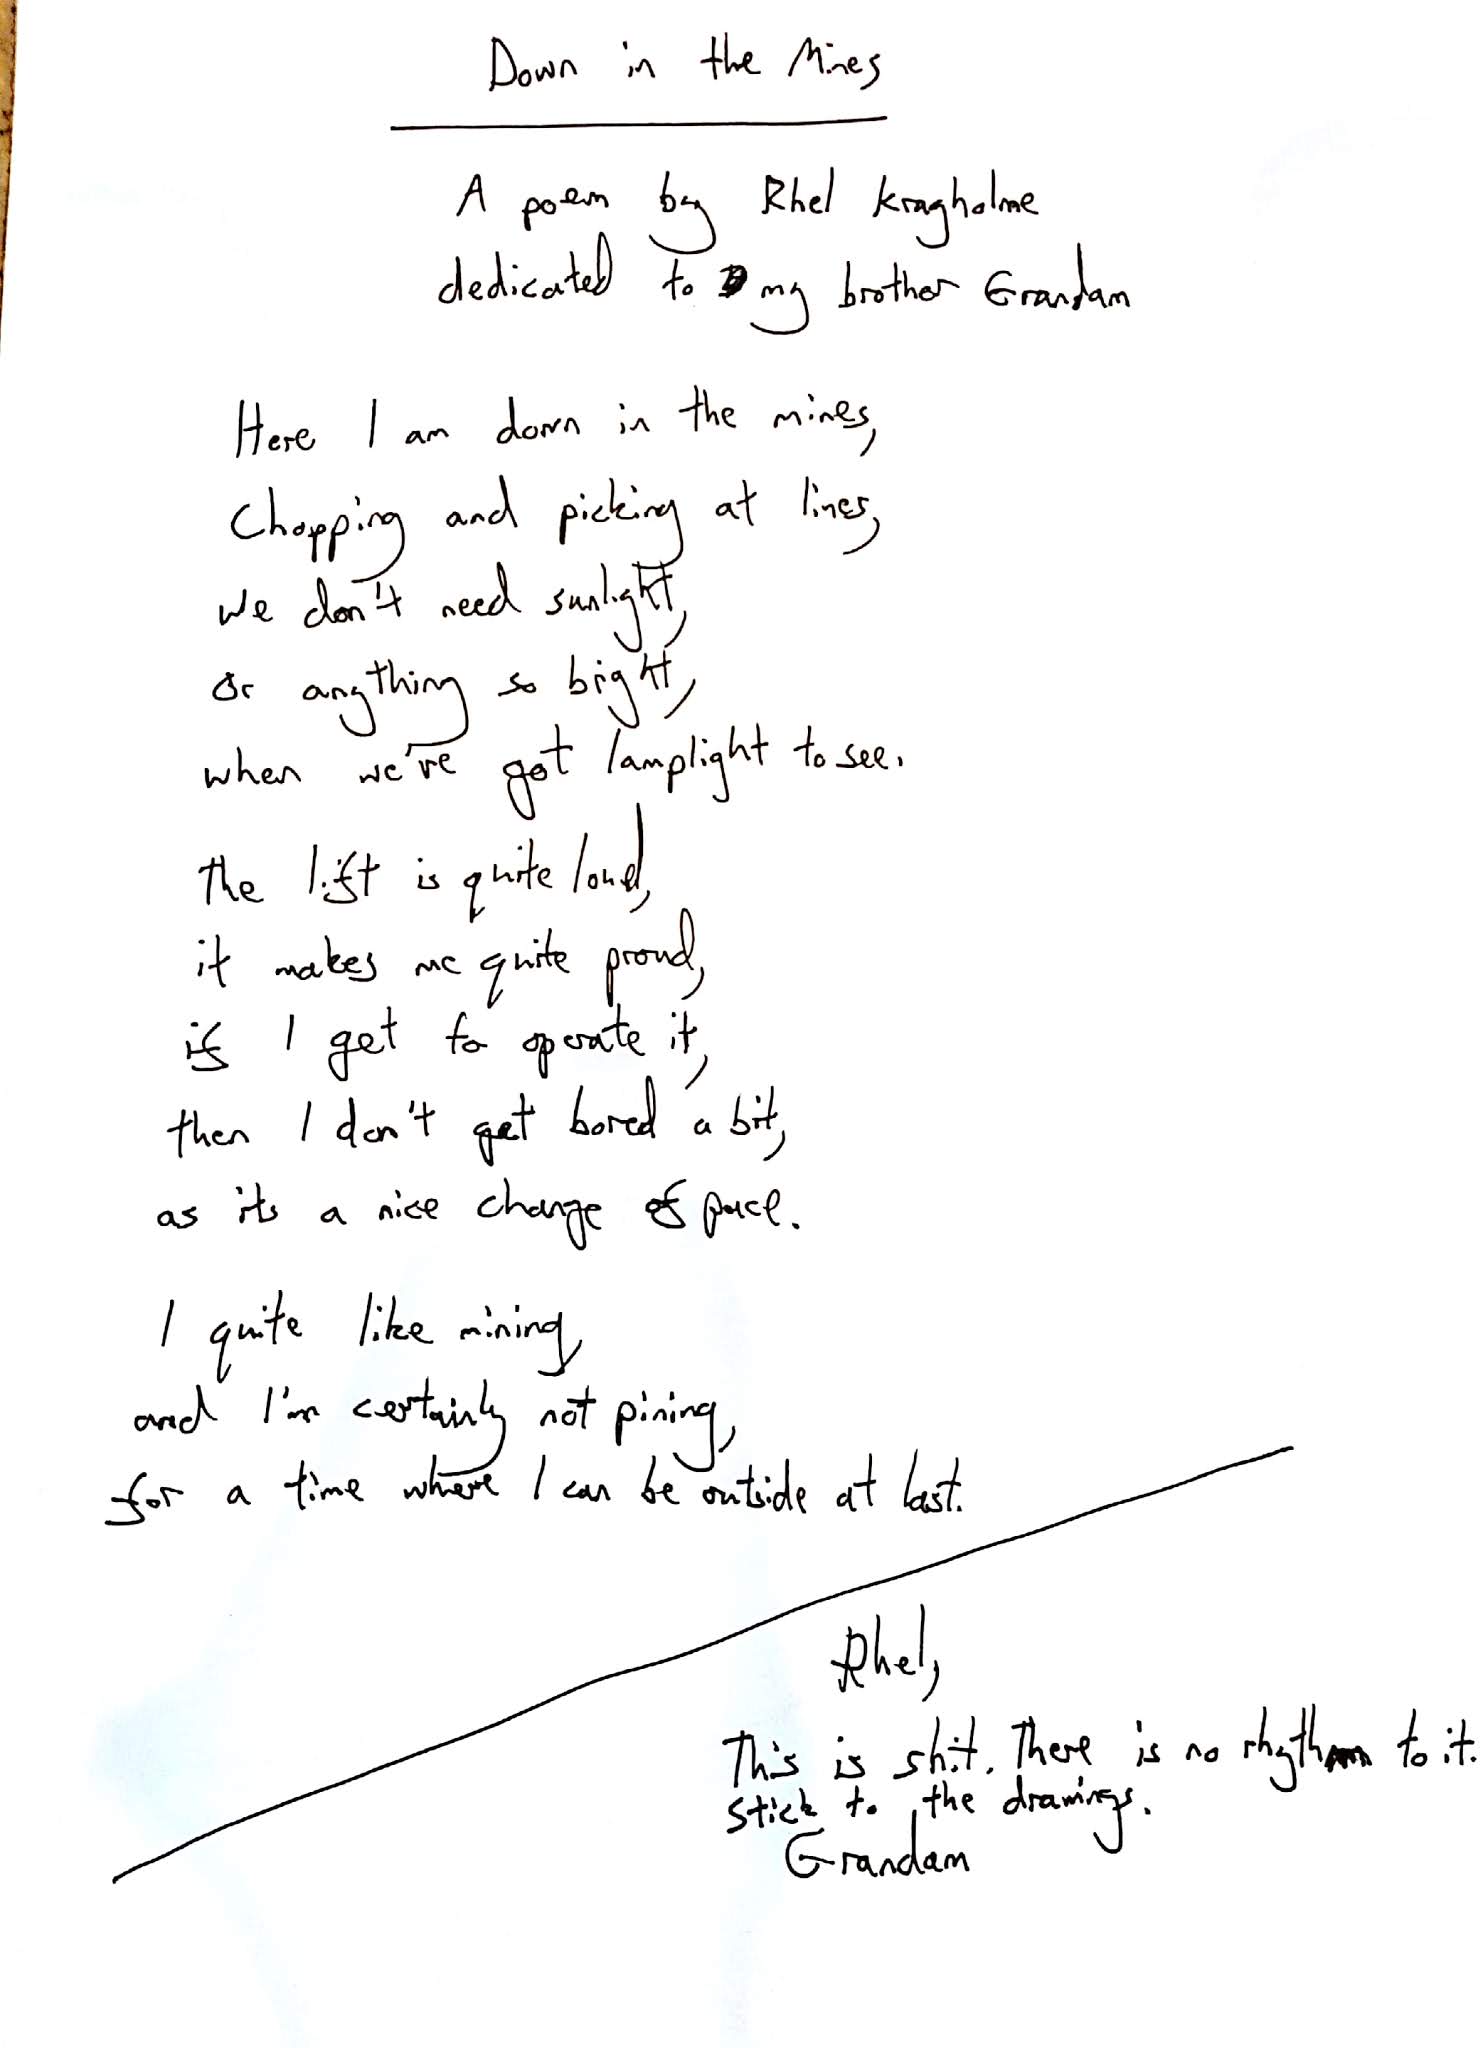 Down in the Mines
A poem by Rhel Kragholme
dedicated to my brother Grandam
Here I am down in the mines,
Chopping and picking at lines,
we don't need sunlight,
or anything so bright,
when we've got lamplight to see.
the lift is quite loud,
it makes me quite proud,
if I get to operate it,
then I don't get bored a bit,
as its a nice change of pace.
I quite like mining,
and I'm certainly not pining,
for a time where I can be outside at last.
Rhel,
This is shit. There is no rhythm to it.
Stick to the drawings.
Grandam